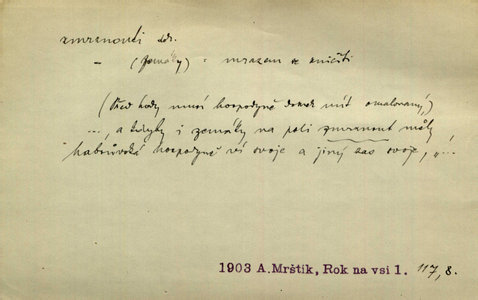 zmrznouti dok.
– (zemáky) : mrazem se zničiti
(Před hody musí hospodyně domek mít omalovaný,)
..., a kdyby i zemáky na poli zmrznout měly
habrůvská hospodyně ví svoje a jiný zas svoje, „...
1903 A.Mrštík, Rok na vsi 1. 117,8.